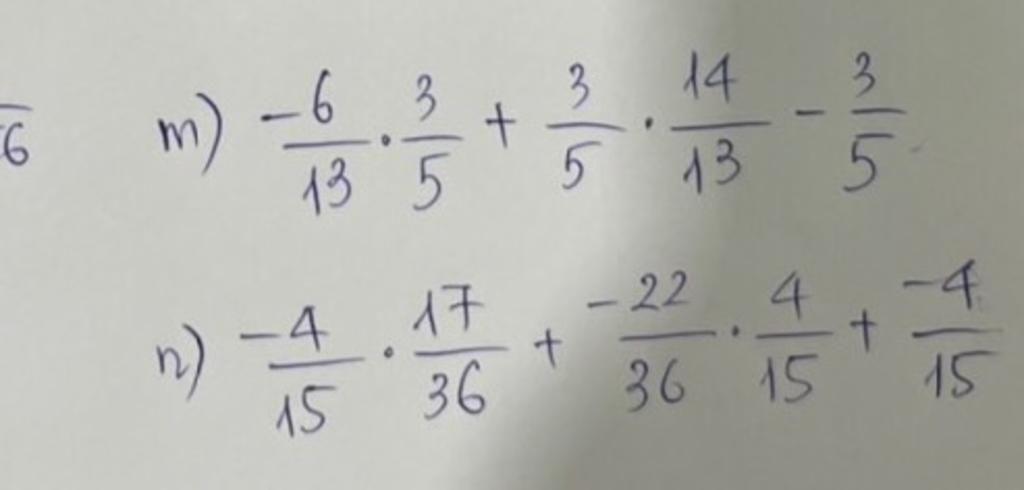 6 m) -6/13 . 3/5 + 3/5 . 14/13 - 3/5
n) -4/15 . 17/36 + -22/36 . 4/15 + -4/15